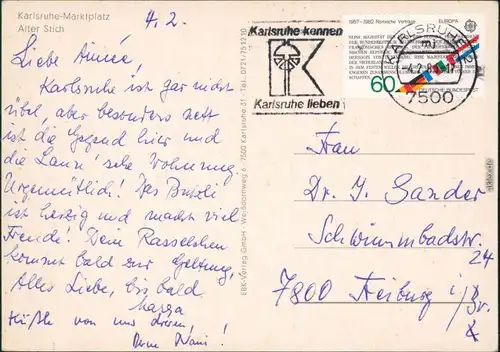 Karlsruhe-Marktplatz
Alter Stich
4.2.
Liebe Aimée,
Karlsruhe ist gar nicht
übel, aber besonders nett
ist die Gegend hier und
die Laun'sche Wohnung.
Urgemütlich! Das Butzli
ist herzig und macht viel
Freude! Dein Rasselchen
kommt bald zur Geltung.
Alles Liebe, bis bald
von uns dreien,
EBK-Verlag GmH · Weißdornweg 6 · 7500 Karlsruhe 31 · Tel.: 0721/751230
Karlsruhe kennen
Karlsruhe lieben
1957-1982 Römische Verträge EUROPA
60
DEUTSCHE BUNDESPOST
KARLSRUHE
7500
Frau
Dr. I. Sander
Schwimmbadstr.
24
7800 Freiburg i/Br.